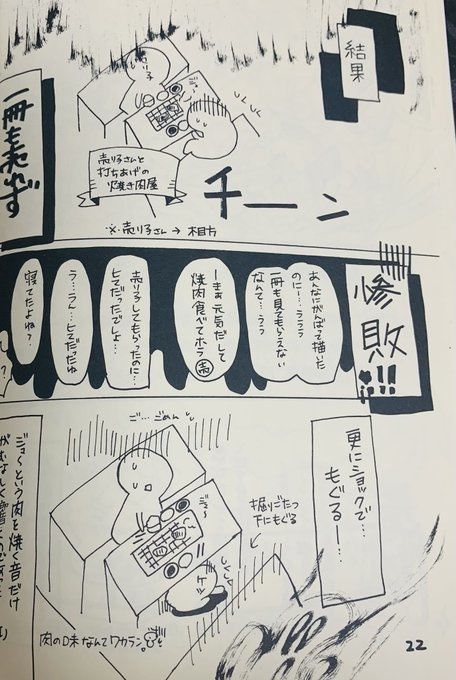 結果
一冊も売れず
売り子
ジュー
シクシク
チーン
売り子さんと
打ちあげの
焼き肉屋
※売り子さん→相方
惨敗!!!
あんなにがんばって描いた
のに…うう
一冊も見てもらえない
なんて…うう
まぁ元気だして
焼肉食べてホラ
売
売り子してもらったのに…
ヒマだったでしょ…
う…うん…ヒマだったね
寝てたよね?
更にショックで…
もぐる—…
ご…ごめん
ジュ〜
掘りごたつ
下にもぐる
肉の味なんてワカラン。
ジュ〜という肉を焼く音だけ
22